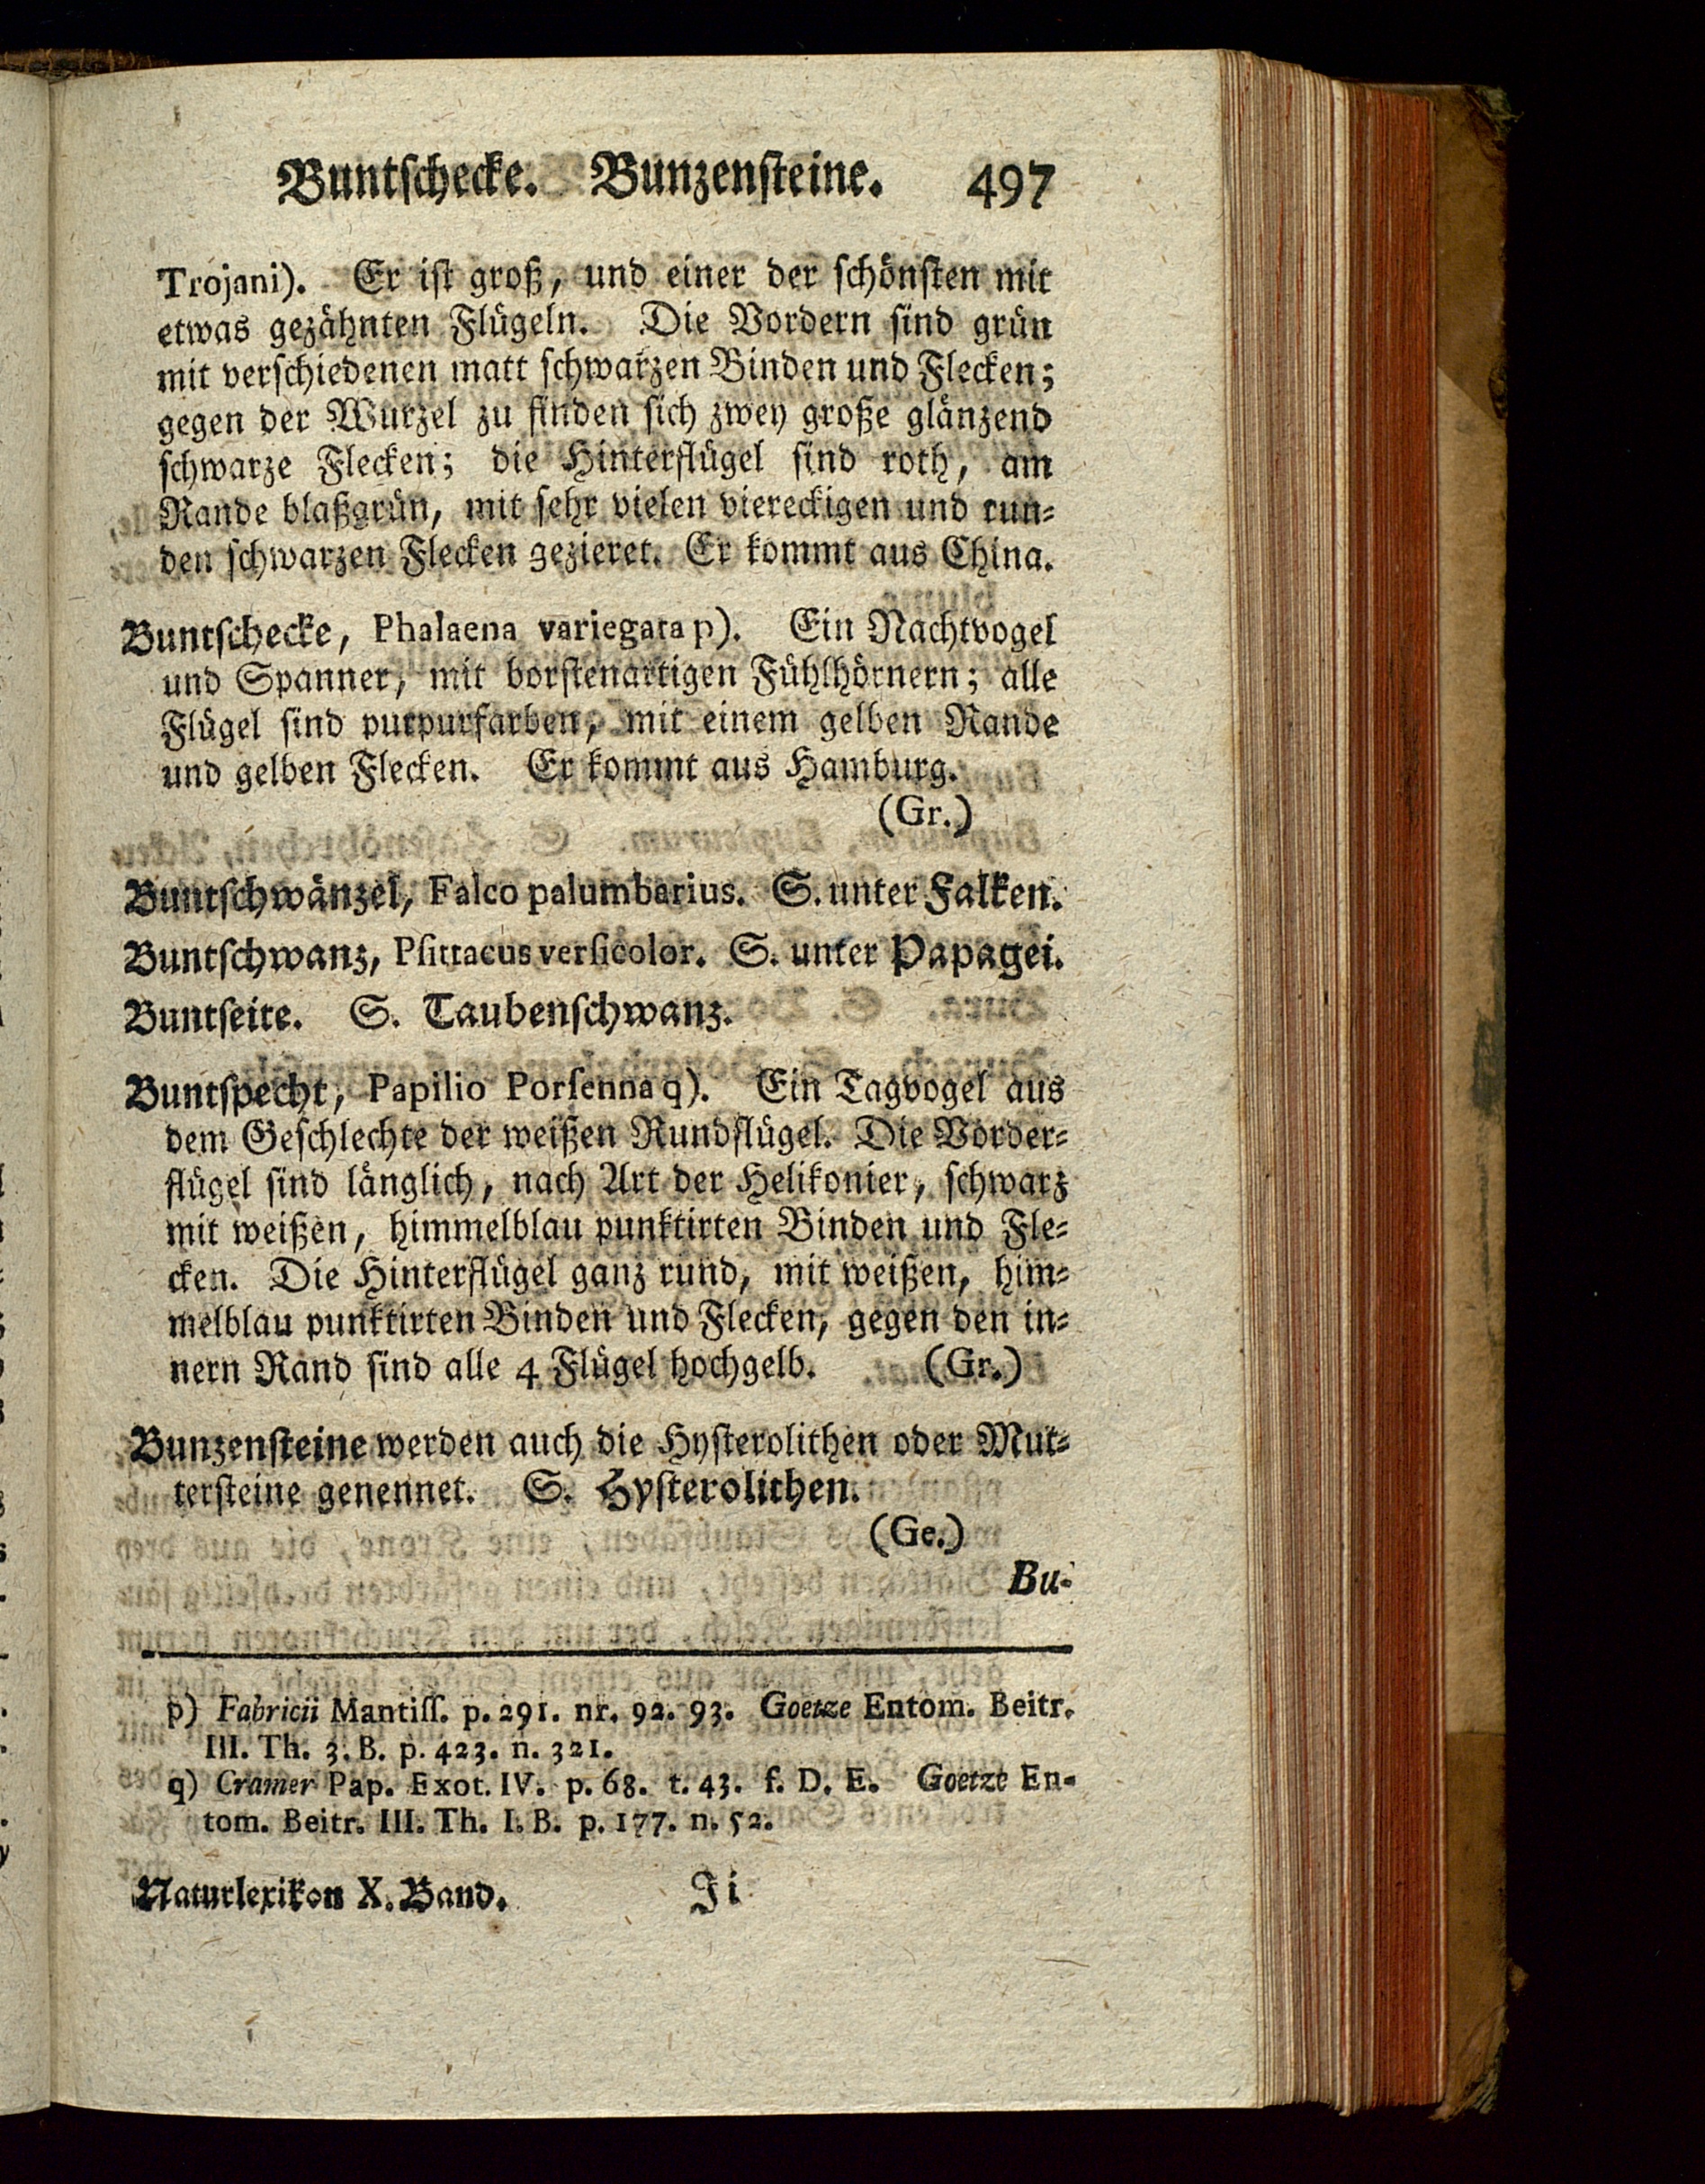 Buntschecke. Bunzensteine. 497
Trojani). Er ist groß, und einer der schönsten mit
etwas gezähnten Flügeln. Die Vordern sind grün
mit verschiedenen matt schwarzen Binden und Flecken;
gegen der Wurzel zu finden sich zwey große glänzend
schwarze Flecken; die Hinterflügel sind roth, am
Rande blaßgrün, mit sehr vielen viereckigen und run-
den schwarzen Flecken gezieret. Er kommt aus China.
Buntschecke, Phalaena variegata p). Ein Nachtvogel
und Spanner, mit borstenartigen Fühlhörnern; alle
Flügel sind purpurfarben, mit einem gelben Rande
und gelben Flecken. Er kommt aus Hamburg.
(Gr.)
Buntschwänzel, Falco palumbarius. S. unter Falken.
Buntschwanz, Psittacus versicolor. S. unter Papagei.
Buntseite. S. Taubenschwanz.
Buntspecht, Papilio Porsenna q). Ein Tagvogel aus
dem Geschlechte der weißen Rundflügel. Die Vorder-
flügel sind länglich, nach Art der Helikonier, schwarz
mit weißen, himmelblau punktirten Binden und Fle-
cken. Die Hinterflügel ganz rund, mit weißen, him-
melblau punktirten Binden und Flecken, gegen den in-
nern Rand sind alle 4 Flügel hochgelb. (Gr.)
Bunzensteine werden auch die Hysterolithen oder Mut-
tersteine genennet. S. Hysterolithen.
(Ge.)
Bu-
p) Fabricii Mantiss. p. 291. nr. 92. 93. Goetze Entom. Beitr.
III. Th. 3. B. p. 423. n. 321.
q) Cramer Pap. Exot. IV. p. 68. t. 43. f. D. E. Goetze En-
tom. Beitr. III. Th. I. B. p. 177. n. 52.
Naturlexikon X. Band. Ji